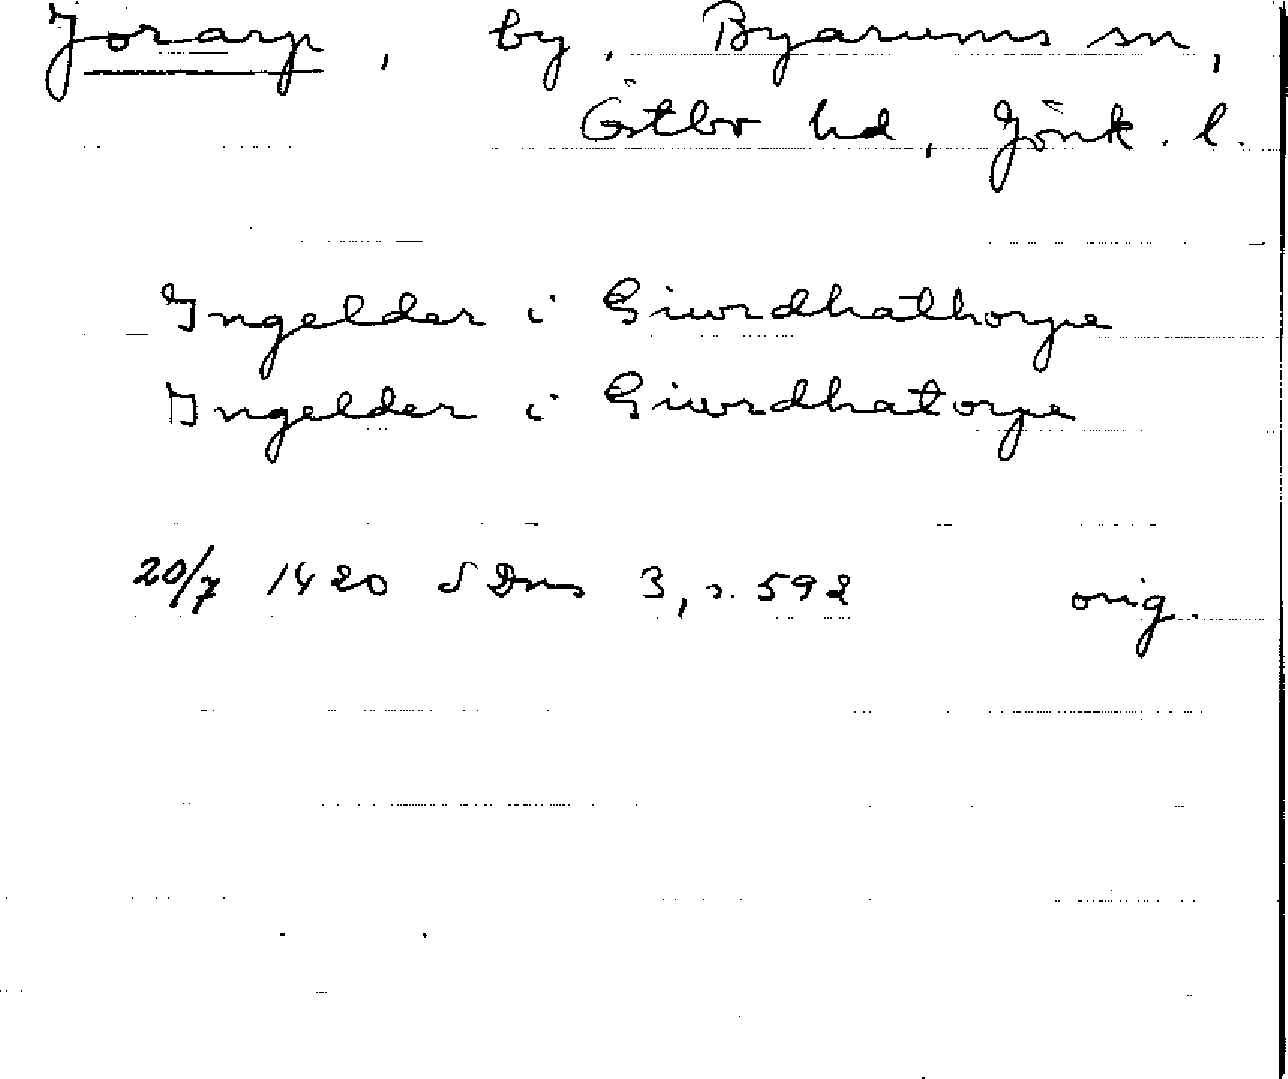 Jorarp, by, Byarums sn,
Östbo hd, Jönk. l.
Ingelder i Giwrdhathorpe
Ingelder i Giwrdhatorpe
20/7 1420 SDns 3, s. 592 orig.